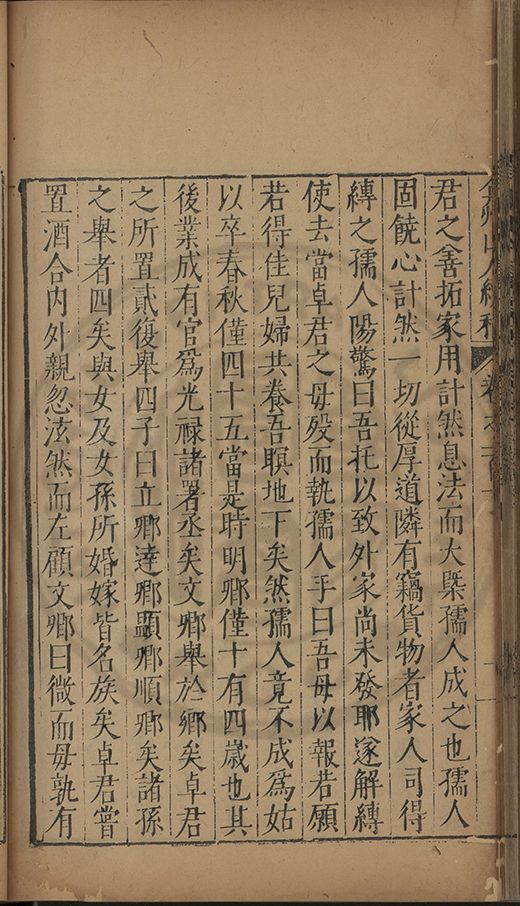 弇州山人續稿 卷之一百
君之善拓家用計然息法而大槩孺人成之也孺人
固饒心計然一切從厚道隣有竊貨物者家人司得
縛之孺人陽驚曰吾托以致外家尚未發耶遂解縛
使去當卓君之母歿而執孺人手曰吾母以報若願
若得佳兒婦共養吾瞑地下矣然孺人竟不成爲姑
以卒春秋僅四十五當是時明卿僅十有四歲也其
後業成有官爲光祿諸署丞矣文卿舉於鄉矣卓君
之所置貳復舉四子曰立卿達卿顯卿順卿矣諸孫
之舉者四矣與女及女孫所婚嫁皆名族矣卓君嘗
置酒合內外親忽泫然而左顧文卿曰微而母孰有